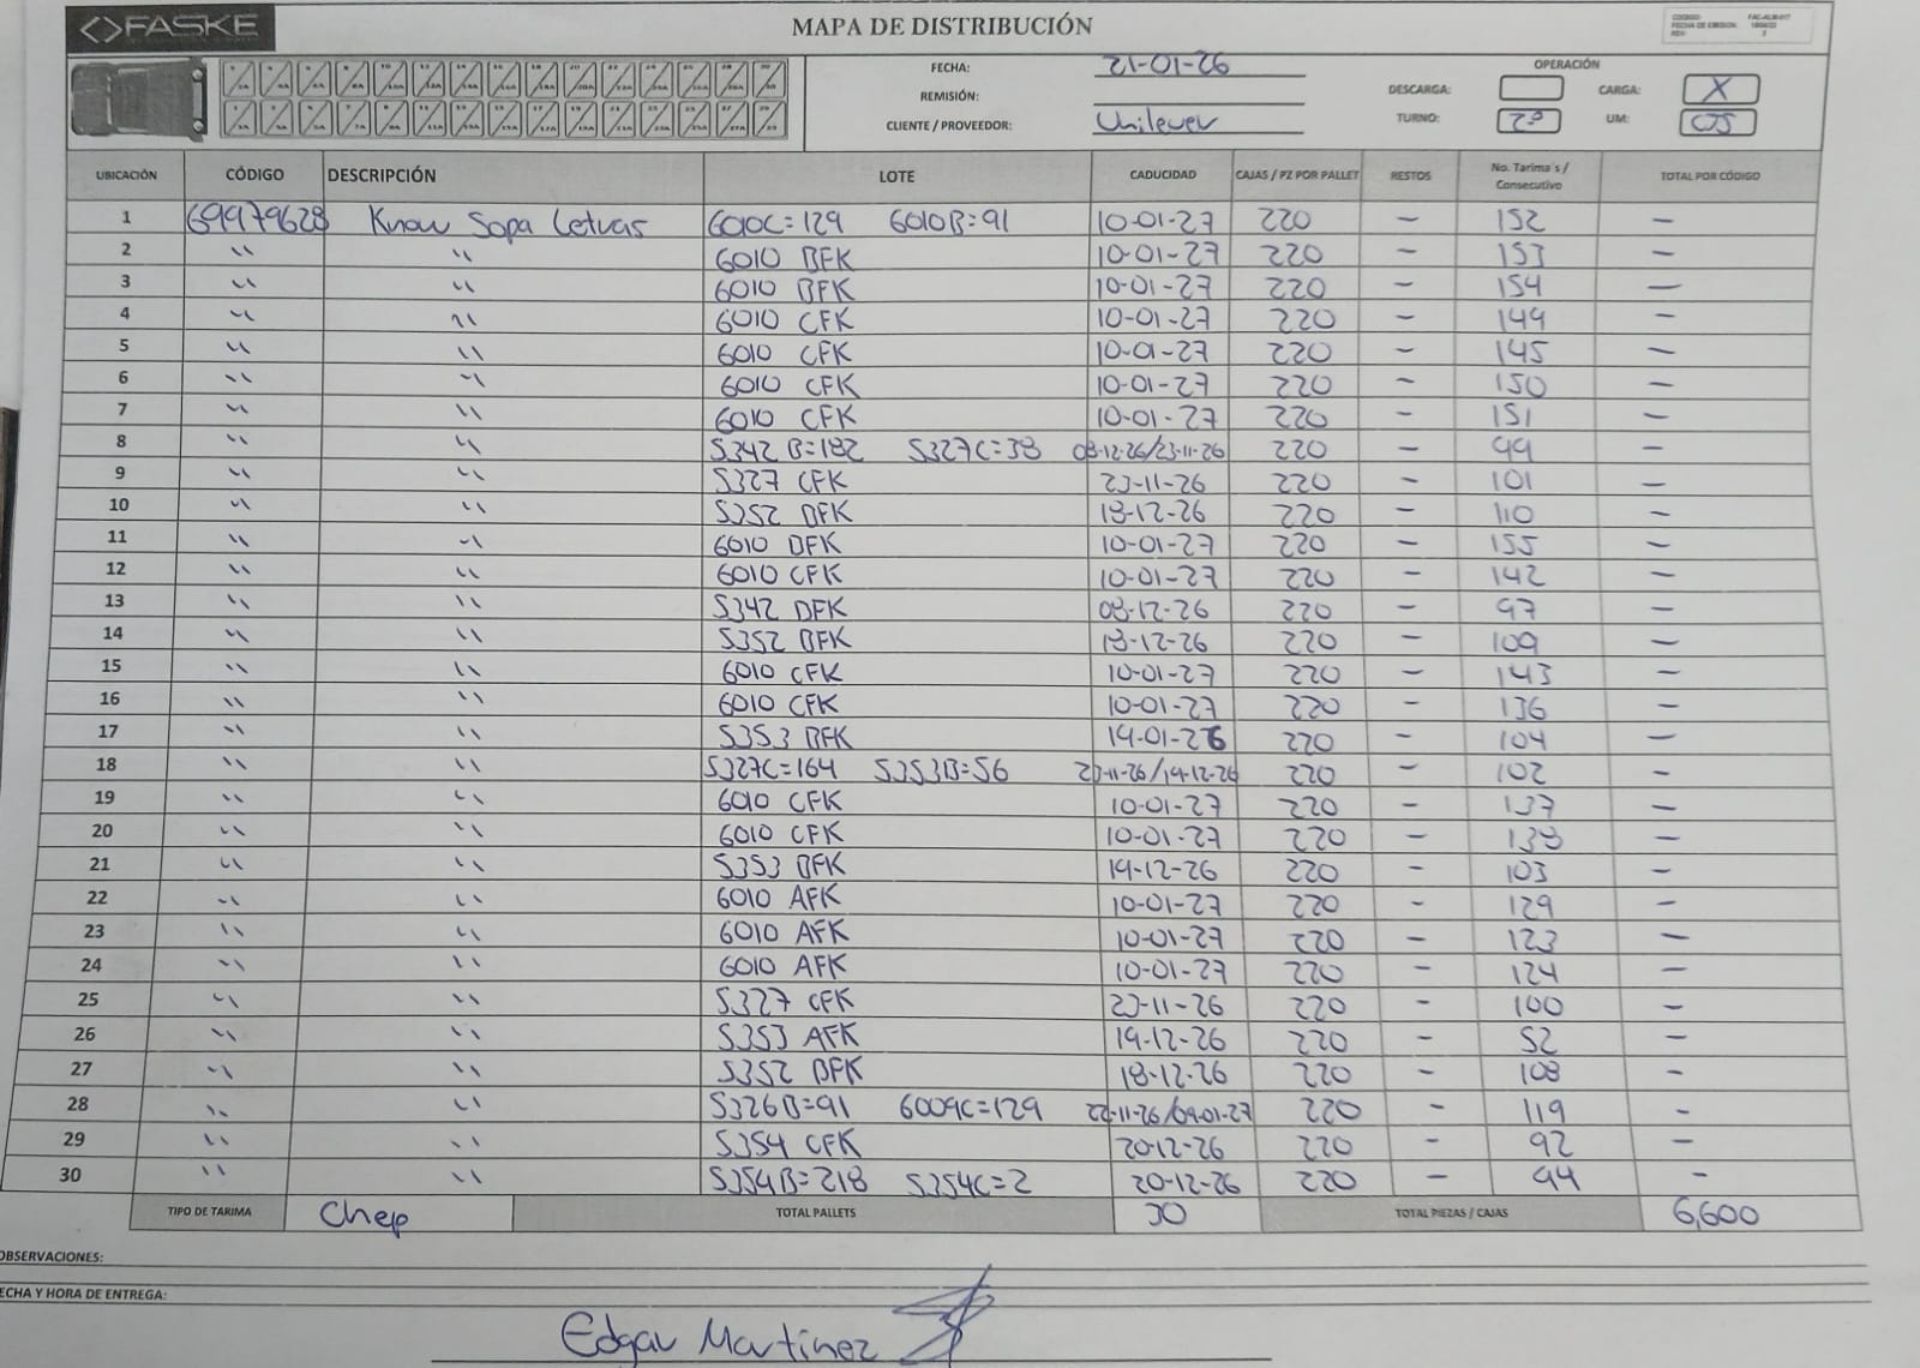 FASKE
MAPA DE DISTRIBUCIÓN
FECHA: 21-01-26
REMISIÓN:
CLIENTE / PROVEEDOR: Unilever
OPERACIÓN
DESCARGA: CARGA: X
TURNO: 2º UM: CJS
UBICACIÓN CÓDIGO DESCRIPCIÓN LOTE CADUCIDAD CAJAS / PZ POR PALLET RESTOS No. Tarima´s / Consecutivo TOTAL POR CÓDIGO
1 69979628 Know Sopa Letras 6010C=129 6010B=91 10-01-27 220 – 152 –
2 '' '' 6010 BFK 10-01-27 220 – 153 –
3 '' '' 6010 BFK 10-01-27 220 – 154 –
4 '' '' 6010 CFK 10-01-27 220 – 149 –
5 '' '' 6010 CFK 10-01-27 220 – 145 –
6 '' '' 6010 CFK 10-01-27 220 – 150 –
7 '' '' 6010 CFK 10-01-27 220 – 151 –
8 '' '' 5342B=182 5327C=38 08-12-26/23-11-26 220 – 99 –
9 '' '' 5327 CFK 23-11-26 220 – 101 –
10 '' '' 5352 BFK 18-12-26 220 – 110 –
11 '' '' 6010 BFK 10-01-27 220 – 155 –
12 '' '' 6010 CFK 10-01-27 220 – 142 –
13 '' '' 5342 BFK 08-12-26 220 – 97 –
14 '' '' 5352 BFK 18-12-26 220 – 109 –
15 '' '' 6010 CFK 10-01-27 220 – 143 –
16 '' '' 6010 CFK 10-01-27 220 – 136 –
17 '' '' 5353 BFK 19-01-26 220 – 104 –
18 '' '' 5327C=164 5353B=56 23-11-26/19-12-26 220 – 102 –
19 '' '' 6010 CFK 10-01-27 220 – 137 –
20 '' '' 6010 CFK 10-01-27 220 – 138 –
21 '' '' 5353 BFK 19-12-26 220 – 103 –
22 '' '' 6010 AFK 10-01-27 220 – 129 –
23 '' '' 6010 AFK 10-01-27 220 – 123 –
24 '' '' 6010 AFK 10-01-27 220 – 124 –
25 '' '' 5327 CFK 23-11-26 220 – 100 –
26 '' '' 5353 AFK 19-12-26 220 – 52 –
27 '' '' 5352 BFK 18-12-26 220 – 108 –
28 '' '' 5326B=91 6009C=129 22-11-26/09-01-27 220 – 119 –
29 '' '' 5354 CFK 20-12-26 220 – 92 –
30 '' '' 5354B=218 5354C=2 20-12-26 220 – 94 –
TIPO DE TARIMA Chep TOTAL PALLETS 30 TOTAL PIEZAS / CAJAS 6,600
OBSERVACIONES:
ECHA Y HORA DE ENTREGA:
Edgar Martinez